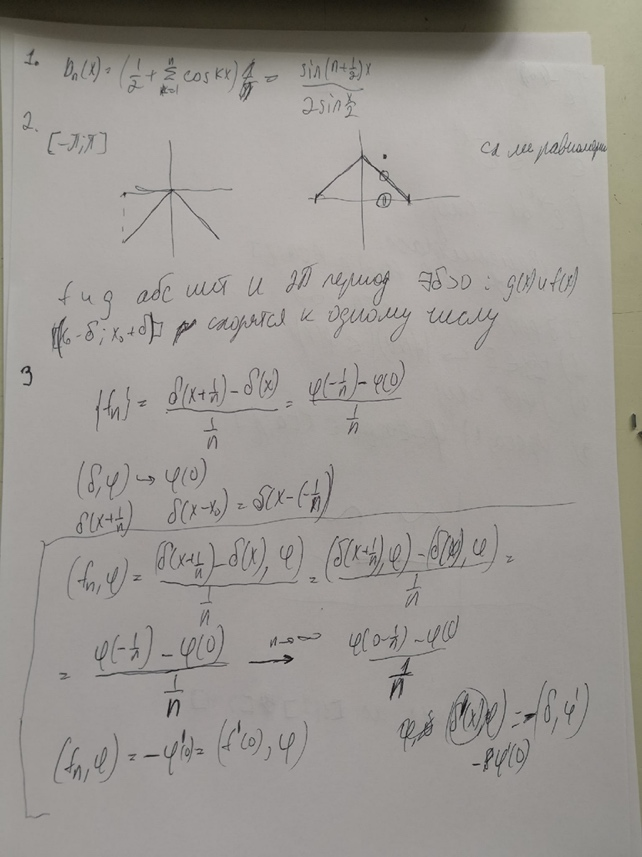 1. Dn(x) = (1/2 + Σ_{k=1}^{n} cos kx) = sin(n+1/2)x / 2 sin x/2
2.
[-π; π]
f и g абс инт и 2π период ∃δ>0 : g(x) и f(x)
x₀-δ; x₀+δ сходятся к одному числу
3
{fn} = (δ(x+1/n) - δ(x)) / (1/n) = (φ(-1/n) - φ(0)) / (1/n)
(δ, φ) → φ(0)
δ(x+1/n) δ(x-x₀) = δ(x-(-1/n))
(fn, φ) = (δ(x+1/n) - δ(x), φ) / (1/n) = ((δ(x+1/n), φ) - (δ(x), φ)) / (1/n) =
= (φ(-1/n) - φ(0)) / (1/n) →^{n→∞} (φ(0-1/n) - φ(0)) / (1/n)
(δ'(x), φ) = -(δ, φ')
-φ'(0)
(fn, φ) = -φ'(0) = (f'(0), φ)